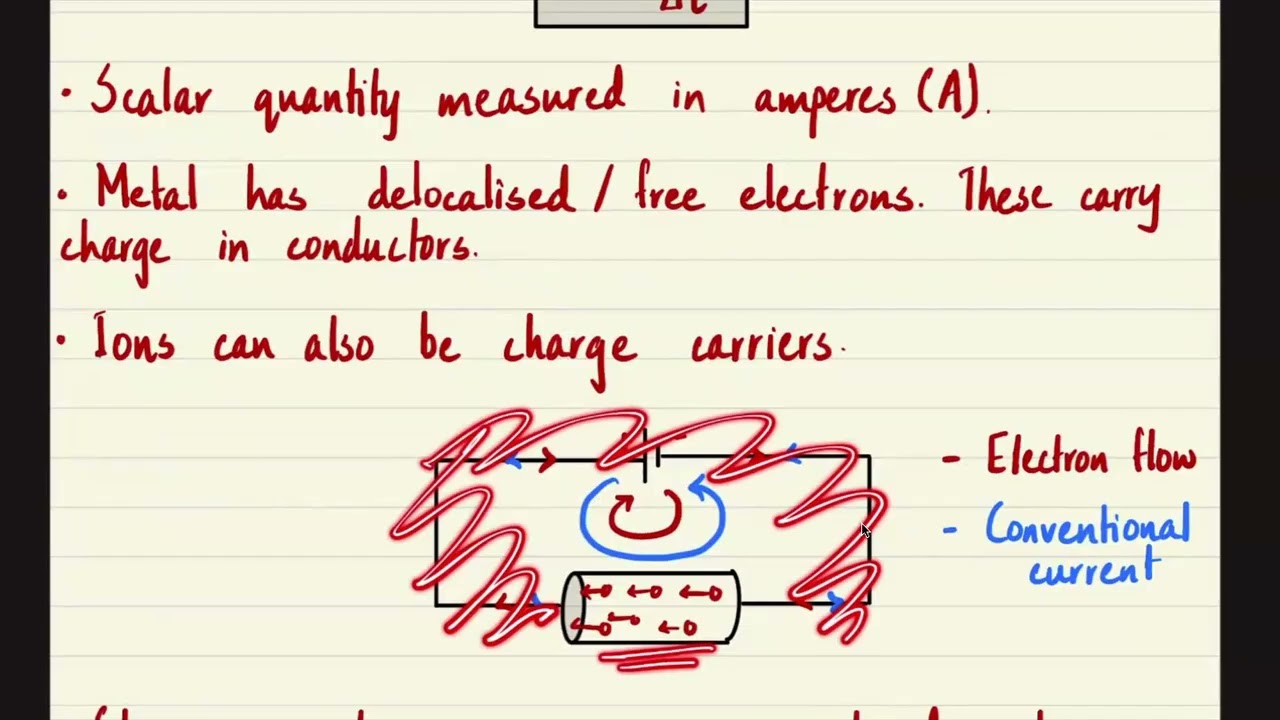 Δt
• Scalar quantity measured in amperes (A).
• Metal has delocalised / free electrons. These carry
charge in conductors.
• Ions can also be charge carriers.
- Electron flow
- Conventional
current